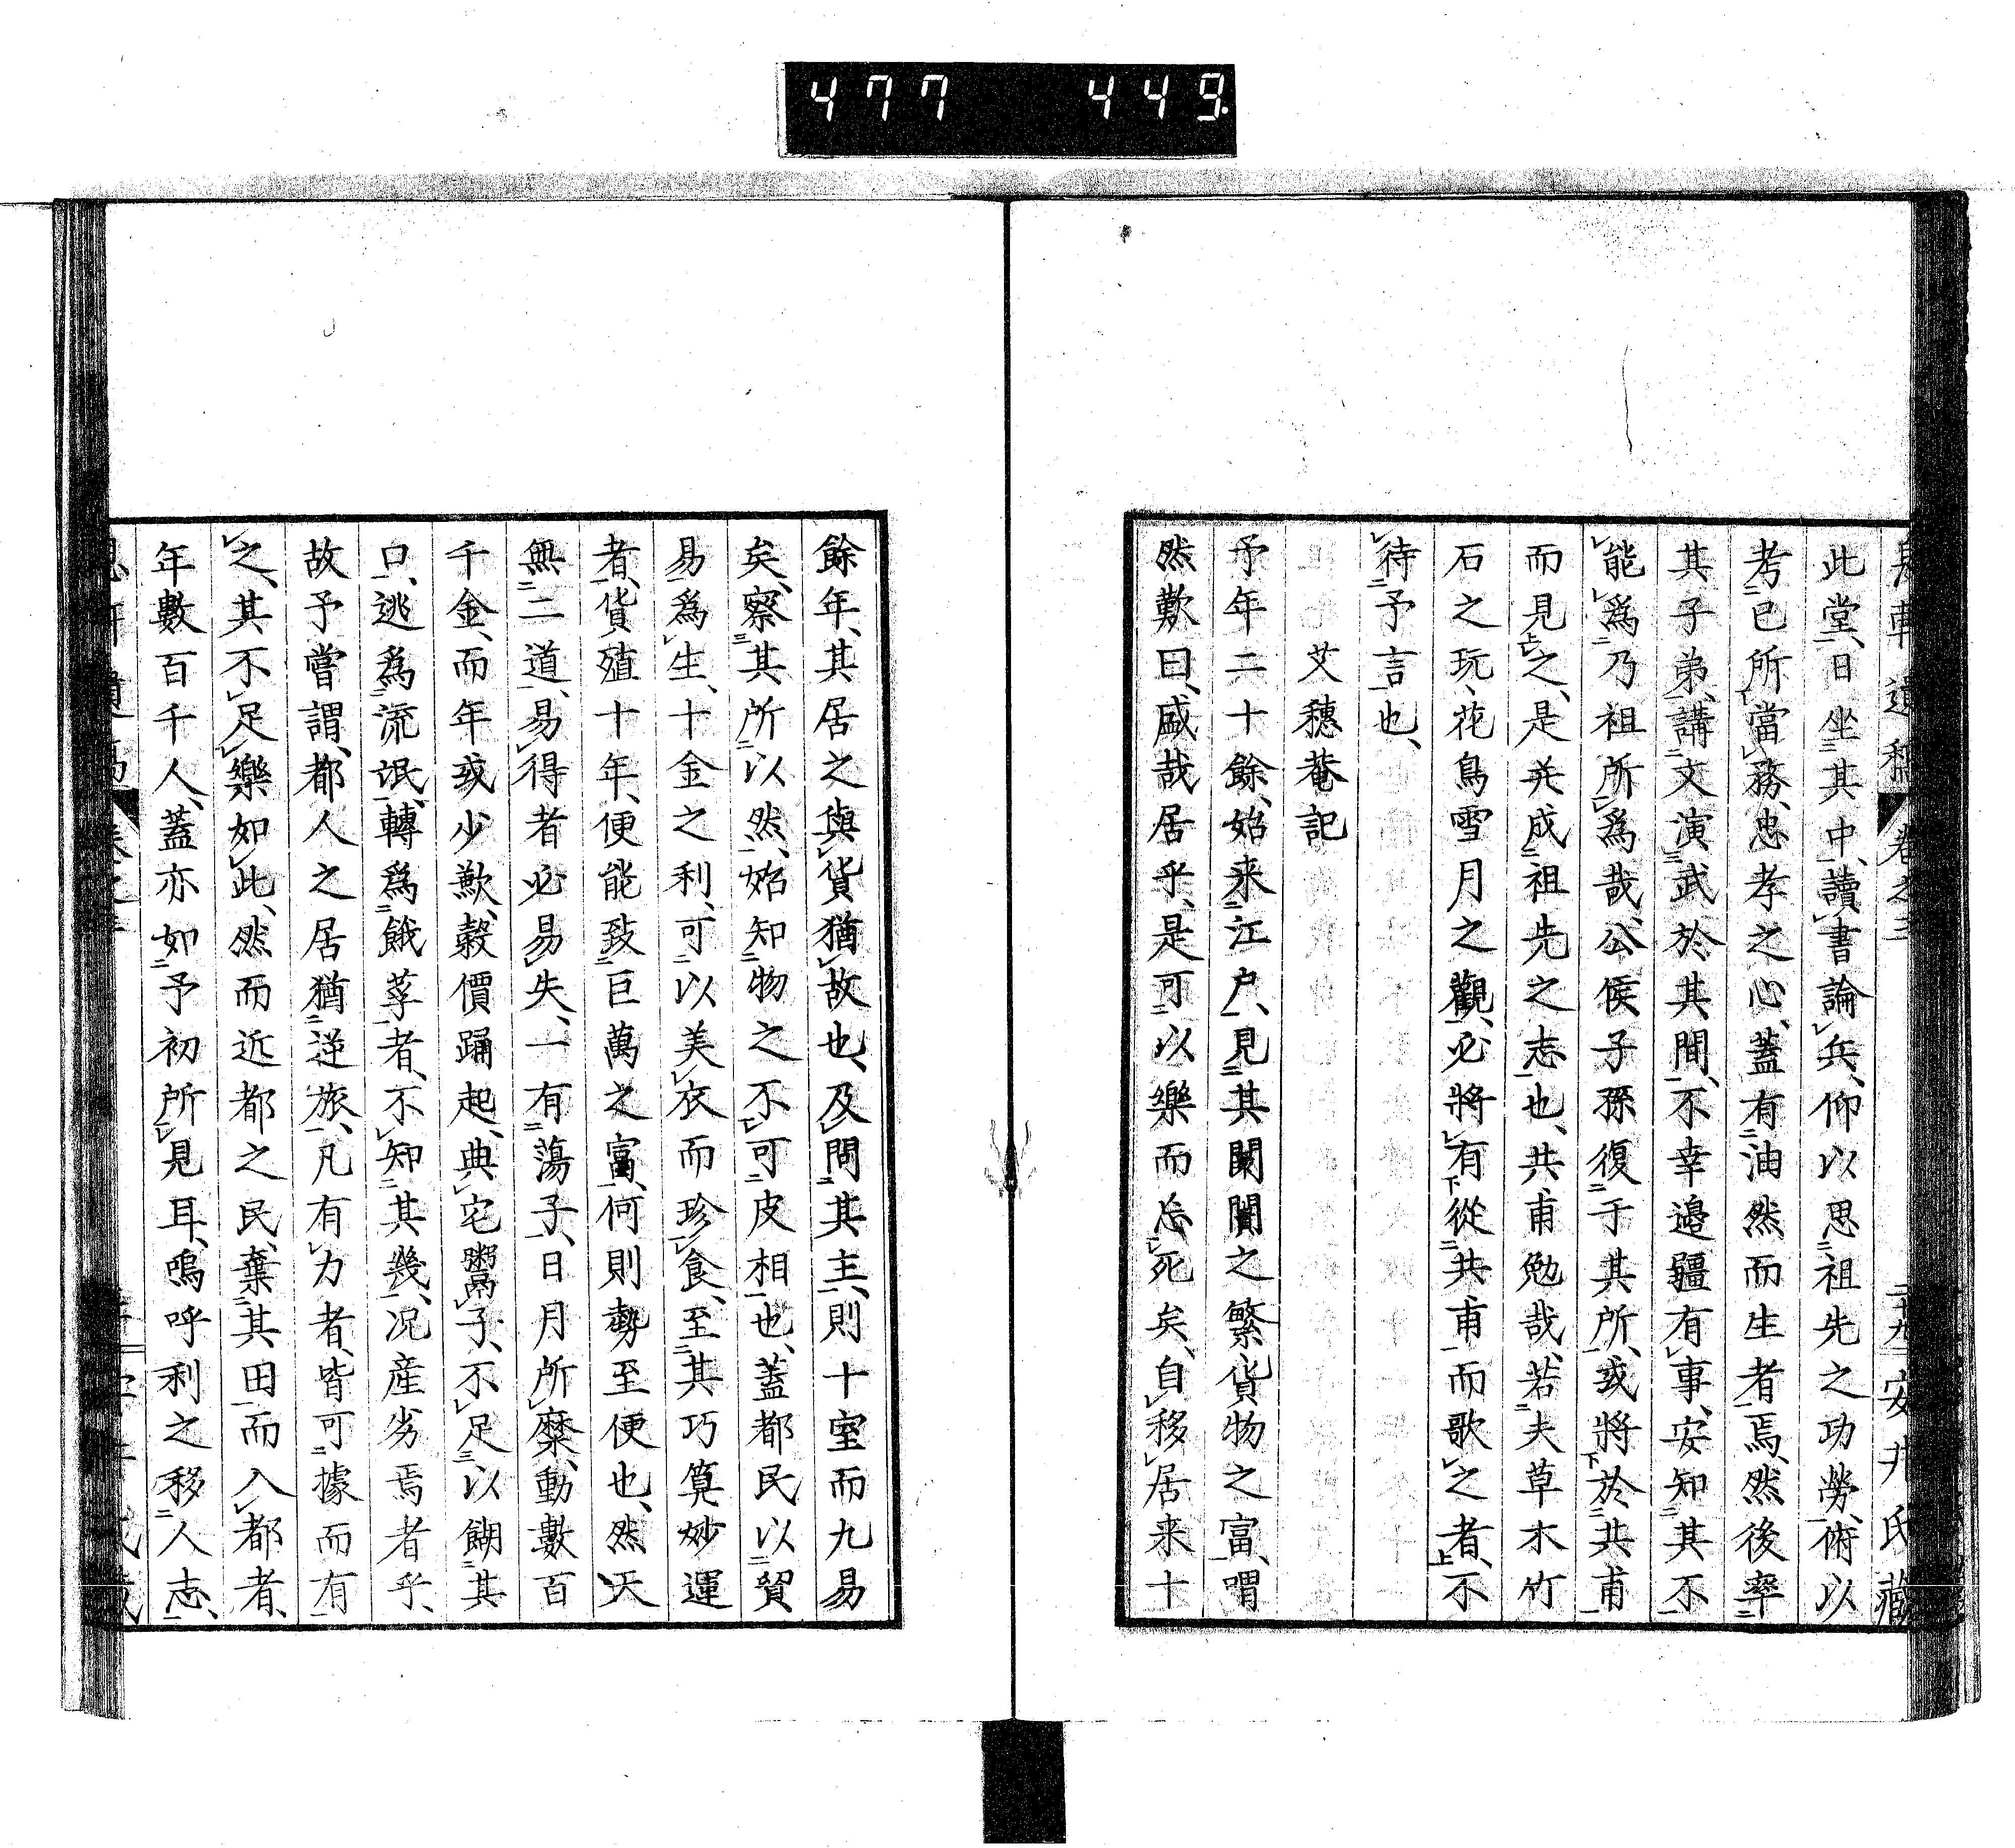 477 449
遺稿 卷之三 二十九 安井氏藏
此堂、日坐其中、讀書論兵、仰以思祖先之功勞、俯以
考已所當務、忠孝之心、蓋有油然而生者焉、然後率
其子弟、講文演武於其間、不幸邊疆有事、安知其不
能爲乃祖所爲哉、公侯子孫復于其所、或將於共甫
而見之、是共成祖先之志也、共甫勉哉、若夫草木竹
石之玩、花鳥雪月之觀、必將有從共甫而歌之者、不
待予言也、
艾穗菴記
予年二十餘、始來江戶、見其闤闠之繁、貨物之富、喟
然歎曰、盛哉居乎、是可以樂而忘死矣、自移居来十
餘年、其居之與貨猶故也、及問其主、則十室而九易
矣、察其所以然、始知物之不可皮相也、蓋都民以貿
易爲生、十金之利、可以美衣而珍食、至其巧算妙運
者、貨殖十年、便能致巨萬之富、何則勢至便也、然天
無二道、易得者必易失、一有蕩子、日月所糜、動數百
千金、而年或少歉、穀價踊起、典宅鬻子、不足以餬其
口、逃爲流氓、轉爲餓莩者、不知其幾、况産劣焉者乎、
故予嘗謂、都人之居猶逆旅、凡有力者、皆可據而有
之、其不足樂如此、然而近都之民、棄其田而入都者、
年數百千人、蓋亦如予初所見耳、嗚呼利之移人志、